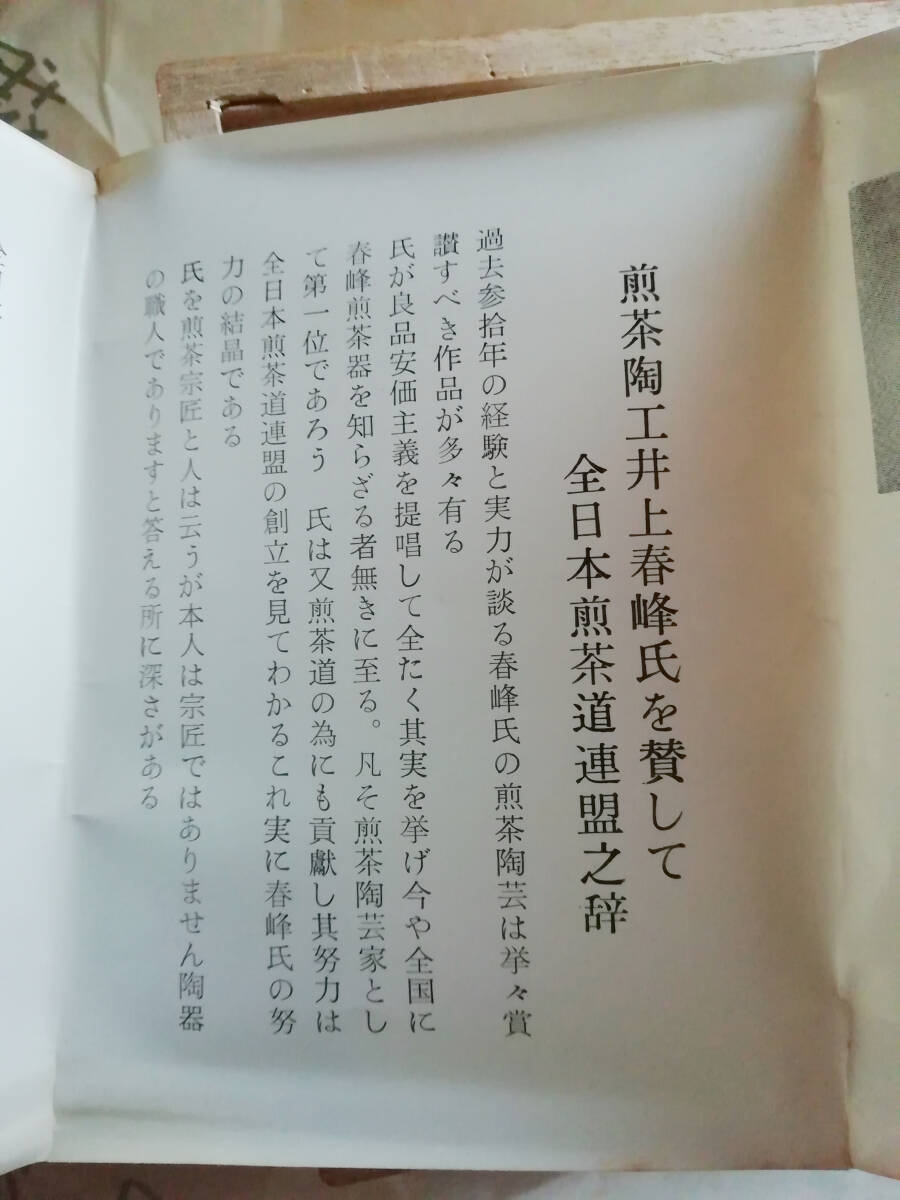 煎茶陶工井上春峰氏を賛して
全日本煎茶道連盟之辞
過去参拾年の経験と実力が談る春峰氏の煎茶陶芸は挙々賞
讃すべき作品が多々有る
氏が良品安価主義を提唱して全たく其実を挙げ今や全国に
春峰煎茶器を知らざる者無きに至る。凡そ煎茶陶芸家とし
て第一位であろう 氏は又煎茶道の為にも貢献し其努力は
全日本煎茶道連盟の創立を見てわかるこれ実に春峰氏の努
力の結晶である
氏を煎茶宗匠と人は云うが本人は宗匠ではありません陶器
の職人でありますと答える所に深さがある